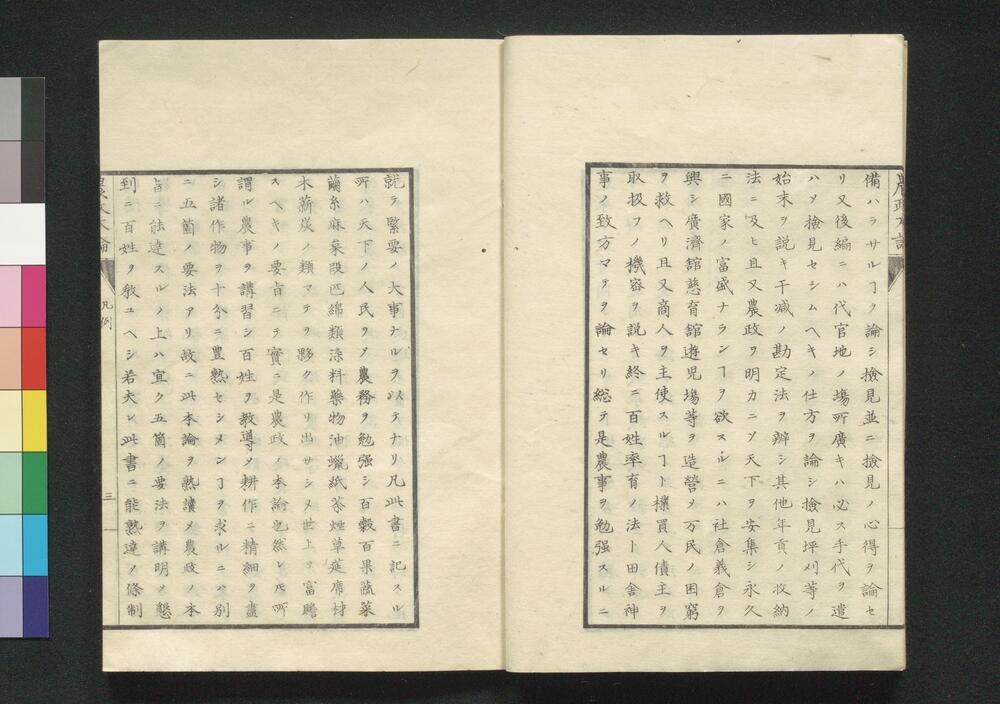 備ハラサルヿヲ論シ撿見並ニ撿見ノ心得ヲ論セ
リ又後編ニハ代官地ノ塲所廣キハ必ス手代ヲ遣
ハシ撿見セシムヘキノ仕方ヲ論シ撿見坪刈等ノ
始末ヲ説キ干減ノ勘定法ヲ辨シ其他年貢ノ收納
法ニ及ヒ且又農政ヲ明カニシ天下ヲ安集シ永久
ニ國家ノ富盛ナランヿヲ欲スルニハ社倉義倉ヲ
興シ廣濟舘慈育舘遊児塲等ヲ造營メ万民ノ困窮
ヲ救ヘリ且又商人ヲ主使スルヿト攥買人債主ヲ
取扱フノ機容ヲ説キ終ニ百姓率育ノ法ト田舎神
事ノ致方マテヲ論セリ総テ是農事ヲ勉强スルニ
就テ緊要ノ大事ナルヲ以テナリ凡此書ニ記スル
所ハ天下ノ人民ヲメ農務ヲ勉强シ百穀百果蔬菜
繭糸麻枲段匹綿類染料藥物油蠟紙茶煙草莚席材
木薪炭ノ類マテヲ夥ク作リ出サシメ世上ヲ富贍
スヘキノ要旨ニテ實ニ是農政ノ本論也然レ𪜈所
謂ル農事ヲ講習シ百姓ヲ教導メ耕作ニ精細ヲ盡
シ諸作物ヲ十分ニ豊熟セシメンヿヲ求ルニハ別
ニ五箇ノ要法アリ故ニ此本論ヲ熟讀メ農政ノ本
旨ニ能達スルノ上ハ宜ク五箇ノ要法ヲ講明メ懇
到ニ百姓ヲ教ユヘシ若夫レ此書ニ能熟達メ條制
農政本論
凡例
三